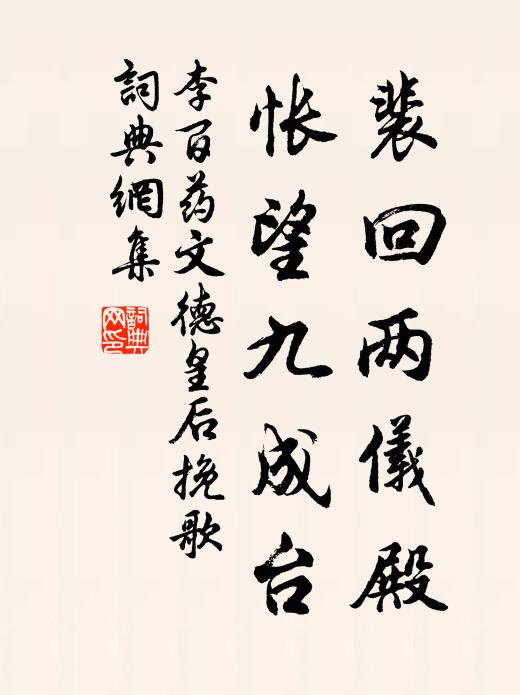 裴回两儀殿
怅望九成台
李百药文德皇后挽歌
詞典網集
詞典网印